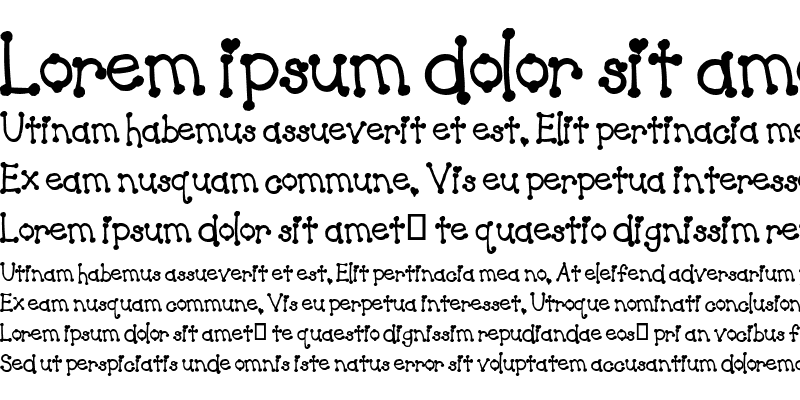 Lorem ipsum dolor sit ame
Utinam habemus assueverit et est. Elit pertinacia me
Ex eam nusquam commune. Vis eu perpetua interess
Lorem ipsum dolor sit amet□ te quaestio dignissim re
Utinam habemus assueverit et est. Elit pertinacia mea no. At eleifend adversarium
Ex eam nusquam commune. Vis eu perpetua interesset. Utroque nominati conclusion
Lorem ipsum dolor sit amet□ te quaestio dignissim repudiandae eos□ pri an vocibus f
Sed ut perspiciatis unde omnis iste natus error sit voluptatem accusantium doloremq